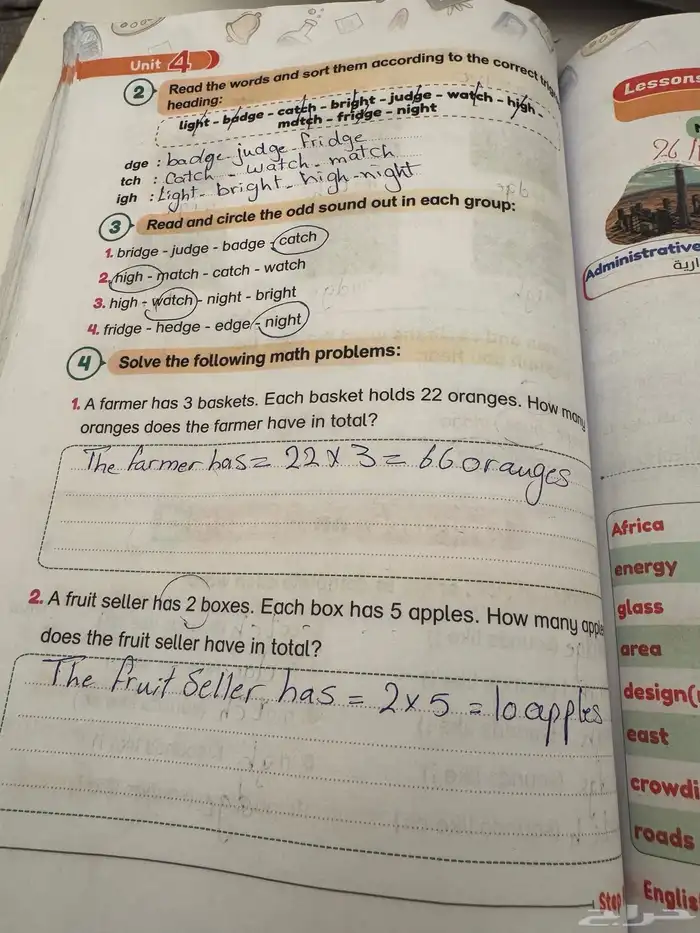 Unit 4
2 Read the words and sort them according to the correct
heading:
light - badge - catch - bright - judge - watch - high -
match - fridge - night
dge : badge - judge - Fridge
tch : Catch - watch - match
igh : Light - bright - high - night
3 Read and circle the odd sound out in each group:
1. bridge - judge - badge - catch
2. high - match - catch - watch
3. high - watch - night - bright
4. fridge - hedge - edge - night
4 Solve the following math problems:
1. A farmer has 3 baskets. Each basket holds 22 oranges. How many
oranges does the farmer have in total?
The farmer has = 22 x 3 = 66 oranges
2. A fruit seller has 2 boxes. Each box has 5 apples. How many apple
does the fruit seller have in total?
The fruit Seller has = 2 x 5 = 10 apples
Lessons
26/
Administrative
ارية
Africa
energy
glass
area
design(
east
crowdi
roads
Step
Englis
حراج